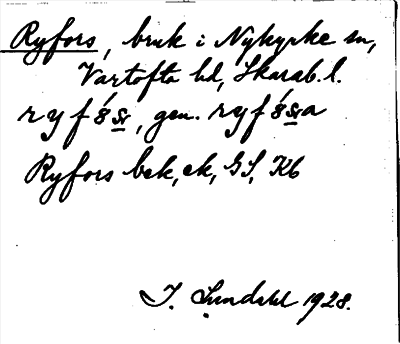 Ryfors, bruk i Nykyrke sn,
Vartofta hd, Skarab. l.
ryf gen. ryf
Ryfors bek, ek, GS, Kb
I. Lundahl 1928.